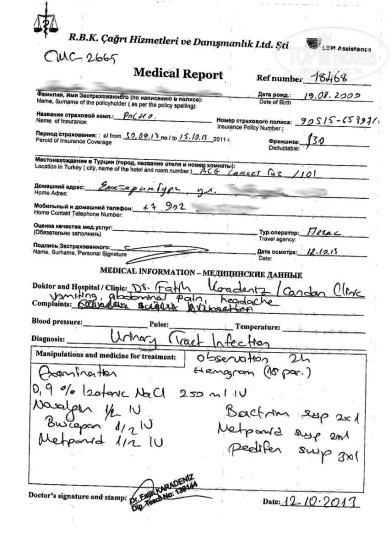 R.B.K. Çağrı Hizmetleri ve Danışmanlık Ltd. Şti
LDM Assistance
CMC-2665
Medical Report
Ref number 18468
Фамилия, Имя Застрахованного (по написанию в полисе):
Name, Surname of the policyholder ( as per the policy spelling):
Дата рожд.: 19.08.2009
Date of Birth
Название страховой комп.: Росно
Name of Insurance:
Номер страхового полиса:
Insurance Policy Number :
Период страхования: с/ from 30.09.13 по / to 15.10.13 2011 г.
Peroid of Insurance Coverage
Франшиза: $30
Deductable:
Местонахождение в Турции (город, название отеля и номер комнаты):
Location in Turkey ( city, name of the hotel and room number)
/101
Домашний адрес: Екатеринбург, ул.
Home Adres:
Мобильный и домашний телефон: +7 902
Home Contakt Telephone Number:
Оценка качества мед.услуг:
(Обязательно заполнить)
Тур.оператор: Пегас
Travel agency:
Подпись Застрахованного:
Name, Surname, Personal Signature
Дата осмотра: 12.10.13
Date:
MEDICAL INFORMATION – МЕДИЦИНСКИЕ ДАННЫЕ
Doktor and Hospital / Clinic: Dr. Fatih Karadeniz / Candan Clinic
vomiting, abdominal pain, headache
Complaints:
Blood pressure: Pulse: Temperature:
Diagnosis: Urinary Tract Infection
Manipulations and medicine for treatment:
Observation 2h
Examination
Hemogram (18 par.)
0,9 % Izotonic NaCl 250 ml IV
Novalgin 1/2 IV
Bactrim susp 2x1
Buscopan 1/2 IV
Metpamid susp 2x1
Metpamid 1/2 IV
Pedifen susp 3x1
Doctor's signature and stamp:
Dr. Fatih KARADENİZ
Dip. Tescil No: 139144
Date: 12.10.2013